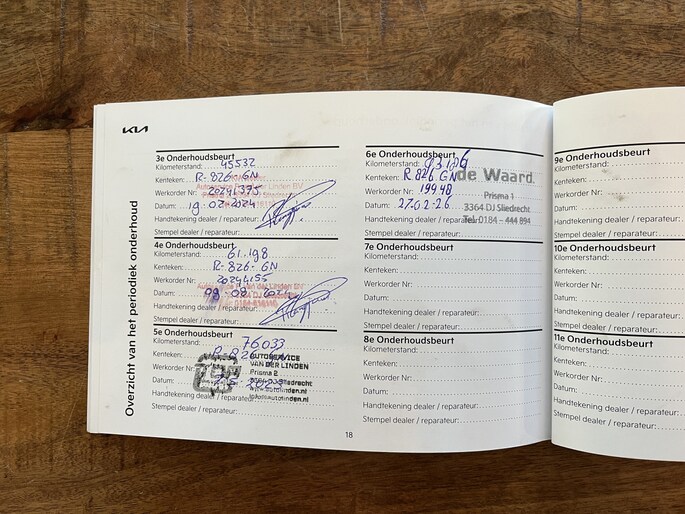 KIA
Overzicht van het periodiek onderhoud
3e Onderhoudsbeurt
Kilometerstand: 45532
Kenteken: R-826-GN
Werkorder Nr: 20241375
Datum: 19-02-2024
Handtekening dealer / reparateur:
Stempel dealer / reparateur:
4e Onderhoudsbeurt
Kilometerstand: 61.198
Kenteken: R-826-GN
Werkorder Nr:
Datum: 09-08-2024
Handtekening dealer / reparateur:
Stempel dealer / reparateur:
5e Onderhoudsbeurt
Kilometerstand: 76033
Kenteken:
AUTOSERVICE
VAN DER LINDEN
Werkorder Nr:
Prisma 2
Sliedrecht
Datum:
Handtekening dealer / reparateur:
Stempel dealer / reparateur:
6e Onderhoudsbeurt
Kilometerstand:
Kenteken: R 826 GN
de Waard
Werkorder Nr: 19948
Prisma 1
Datum: 27-02-26
3364 DJ Sliedrecht
Handtekening dealer / reparateur:
Tel. 0184 - 444 894
Stempel dealer / reparateur:
7e Onderhoudsbeurt
Kilometerstand:
Kenteken:
Werkorder Nr:
Datum:
Handtekening dealer / reparateur:
Stempel dealer / reparateur:
8e Onderhoudsbeurt
Kilometerstand:
Kenteken:
Werkorder Nr:
Datum:
Handtekening dealer / reparateur:
Stempel dealer / reparateur:
18
9e Onderhoudsbeurt
Kilometerstand:
Kenteken:
Werkorder Nr:
Datum:
Handtekening dealer / reparateur
Stempel dealer / reparateur:
10e Onderhoudsbeurt
Kilometerstand:
Kenteken:
Werkorder Nr:
Datum:
Handtekening dealer / reparateur
Stempel dealer / reparateur:
11e Onderhoudsbeurt
Kilometerstand:
Kenteken:
Werkorder Nr:
Datum:
Handtekening dealer / reparateur
Stempel dealer / reparateur: